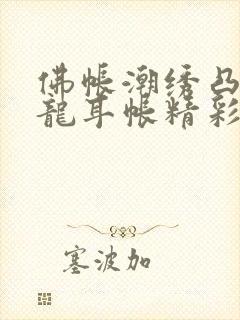 佛帐潮绣凸
龍耳帐精彩
塞波加